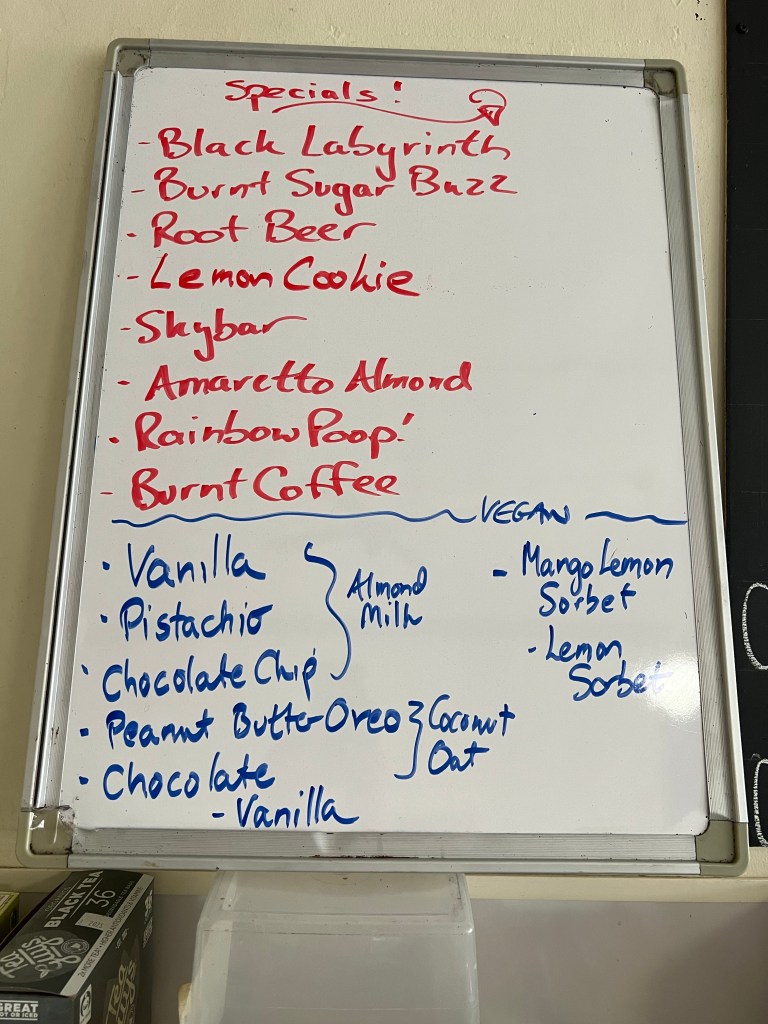 Specials!
- Black Labyrinth
- Burnt Sugar Buzz
- Root Beer
- Lemon Cookie
- Skybar
- Amaretto Almond
- Rainbow Poop!
- Burnt Coffee
VEGAN
- Vanilla
- Pistachio
- Chocolate Chip
Almond
Milk
- Peanut Butter Oreo
- Chocolate
- Vanilla
Coconut
Oat
- Mango Lemon
Sorbet
- Lemon
Sorbet
BLACK TEA
36
GREAT
HOT OR ICED